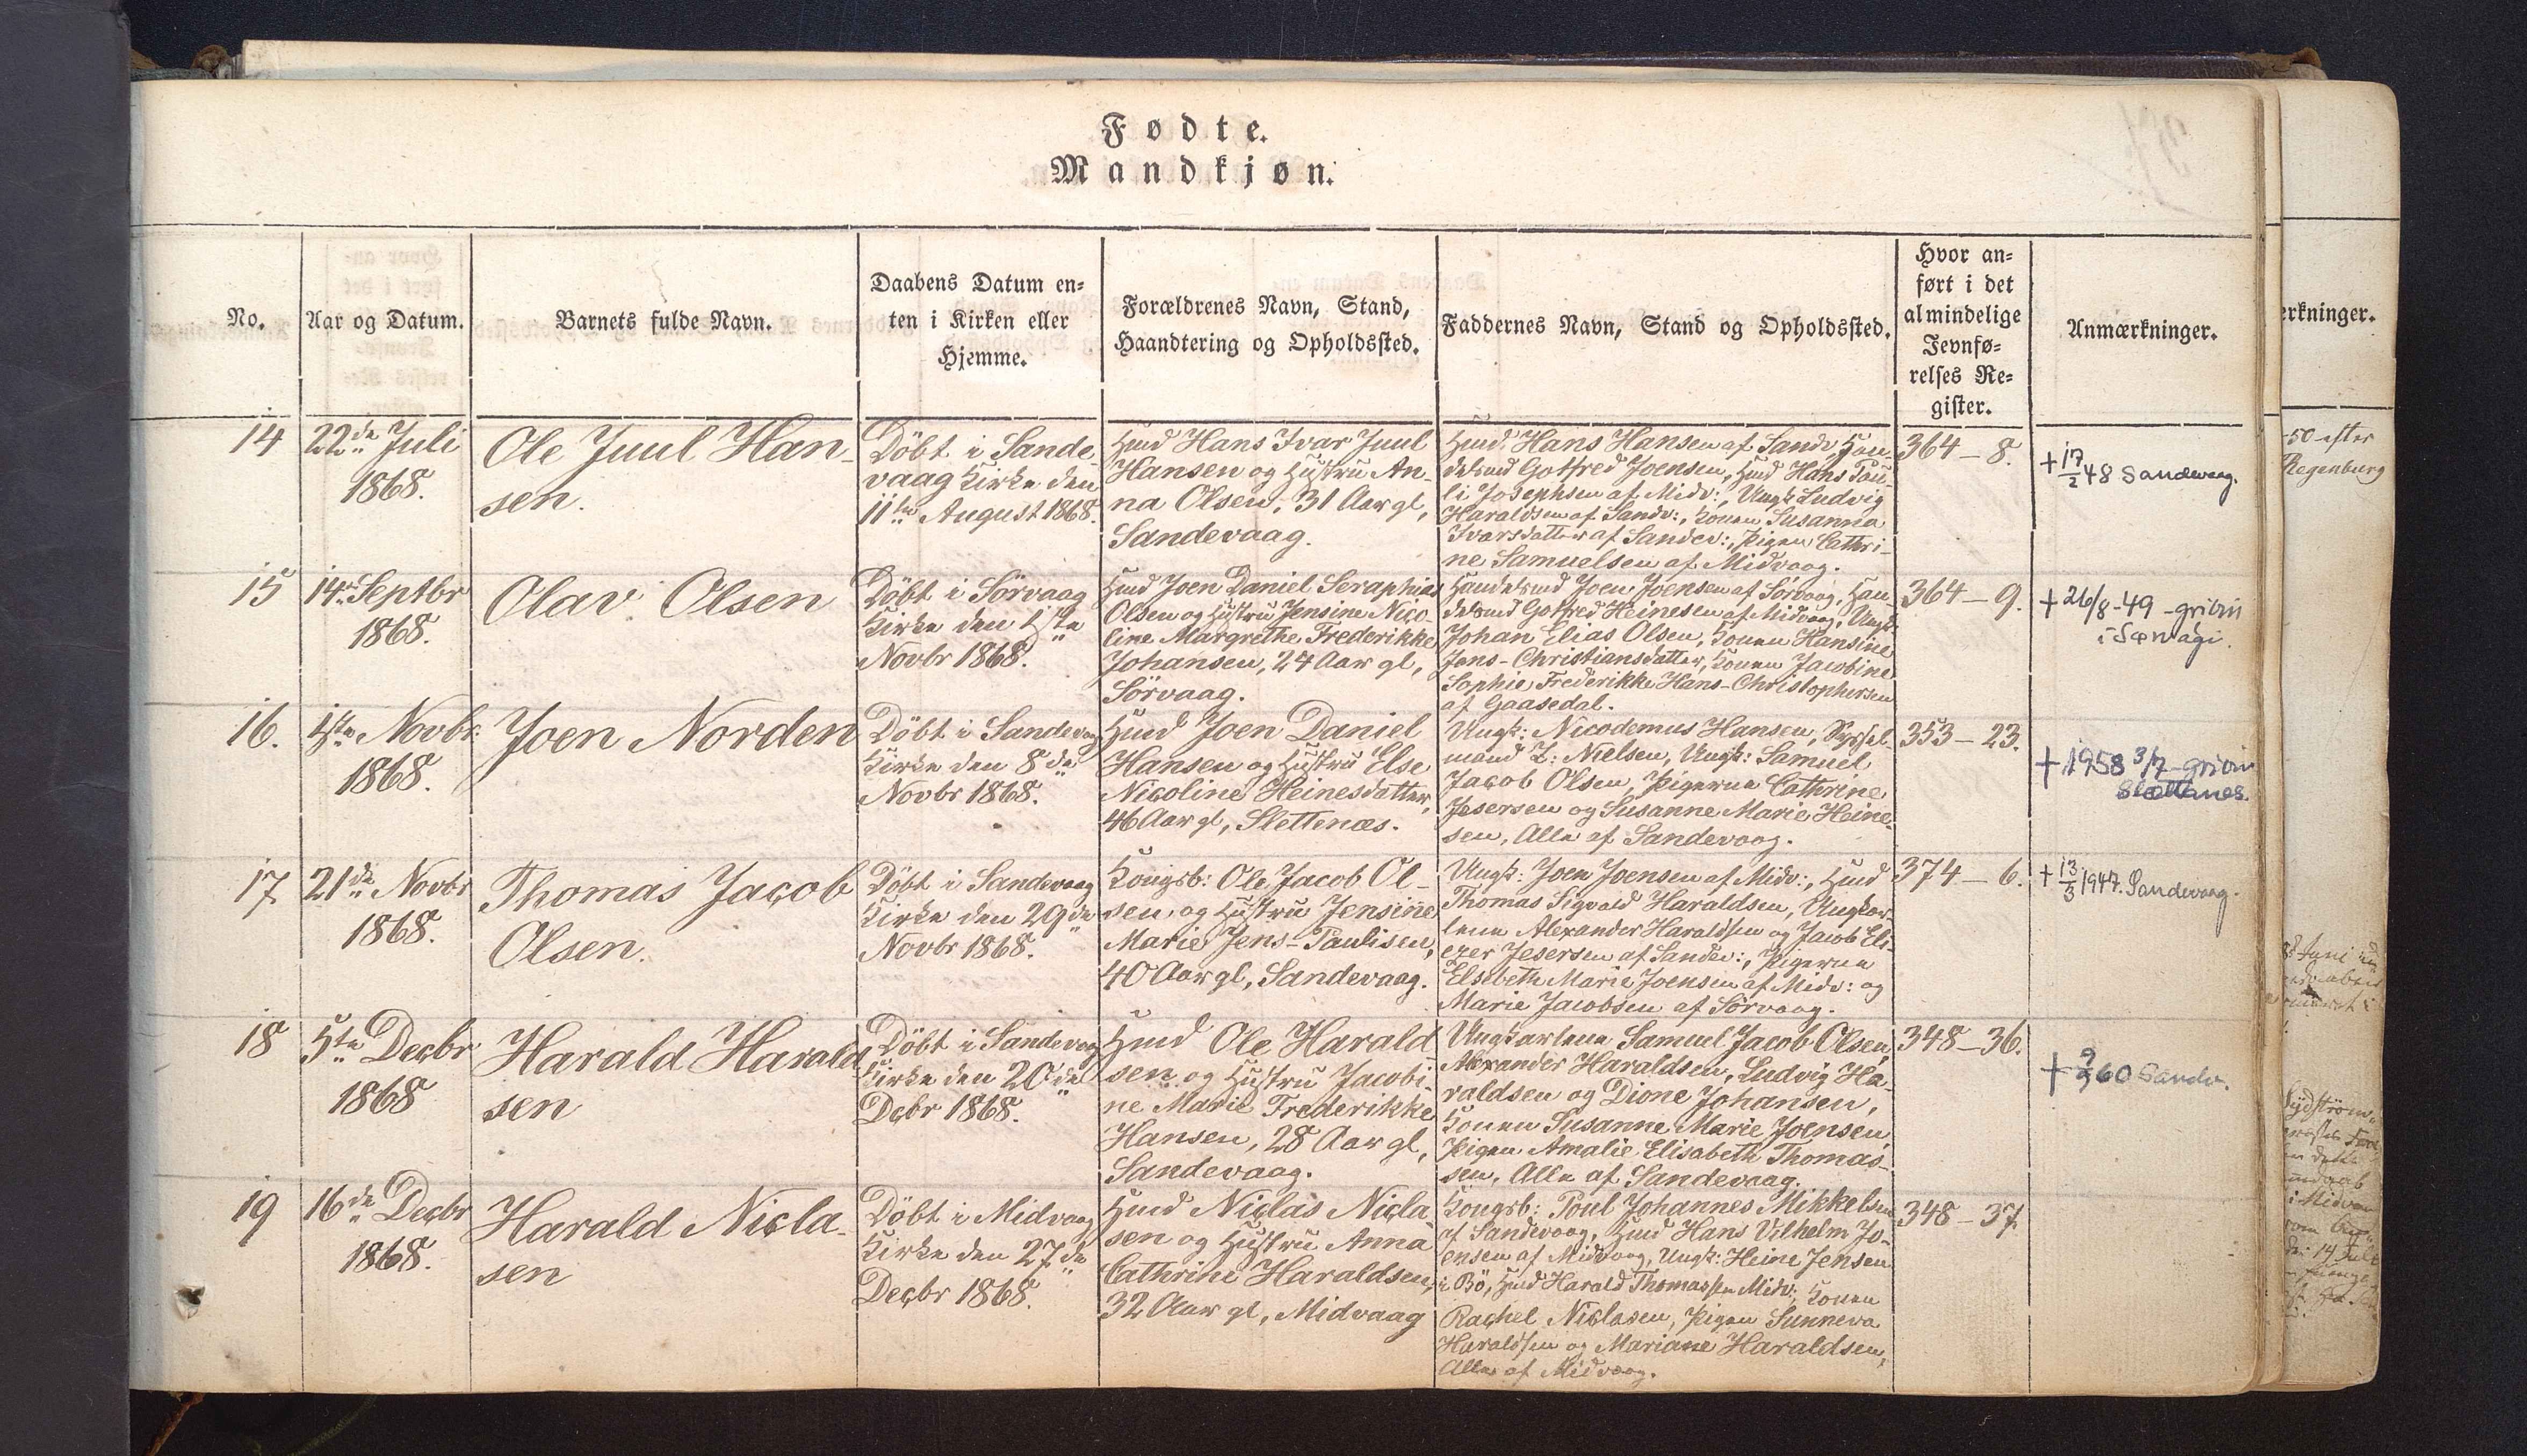 Fødte.
Mandkjøn.
No.
Aar og Datum.
Barnets fulde Navn.
Daabens Datum en-
ten i Kirken eller
Hjemme.
Forældrenes Navn, Stand,
Haandtering og Opholdssted.
Faddernes Navn, Stand og Opholdssted.
Hvor an-
ført i det
almindelige
Jevnfø-
relses Re-
gister.
Anmærkninger.
14
22de Juli
1868.
Ole Juul Han-
sen.
Döbt i Sande-
vaag Kirke den
11te August 1868.
Hmd Hans Ivar Juul
Hansen og Hustru An-
na Olsen, 31 Aar gl,
Sandevaag.
Hmd: Hans Hansen af Sandv, Han-
delsmd Gotfred Joensen, Hmd Hans Pou-
li Josephsen af Midv:, Ungk Ludvig
Haraldsen af Sandv:, Konen Susanna
Ivarsdatter af Sandev:, Pigen Cathri-
ne Samuelsen af Midvaag.
364-8.
+ 17/2 48 Sandevaag.
15
14de Septbr
1868.
Olav Olsen
Döbt i Sörvaag
Kirke den 1ste
Novbr 1868.
Hmd Joen Daniel Seraphias
Olsen og Hustru Jensine Nico-
line Margrethe Frederikke
Johansen, 24 Aar gl,
Sörvaag.
Handelsmd Joen Joensen af Sörvaag, Han-
delsmd Gotfred Heinesen af Midvaag, Ungk:
Johan Elias Olsen, Konen Hansine
Jens-Christiansdatter, Konen Jacobine
Sophie Frederikke Hans-Christophersen
af Gaasedal.
364-9.
+ 26/8-49 - grivin
i Sørvági.
16.
1ste Novbr.
1868.
Joen Norden
Döbt i Sandevaag
Kirke den 8de
Novbr 1868.
Hmd Joen Daniel
Hansen og Hustru Else
Nicoline Heinesdatter,
46 Aar gl, Slettenæs.
Ungk: Nicodemus Hansen, Syssel-
mand Z: Nielsen, Ungk: Samuel
Jacob Olsen, Pigerne Cathrine
Jesersen og Susanne Marie Heine-
sen, Alle af Sandevaag.
353-23.
+ 1958 3/7 - grivin
Slættanes.
17
21de Novbr
1868.
Thomas Jacob
Olsen.
Döbt i Sandevaag
Kirke den 29de
Novbr 1868.
Kongsb: Ole Jacob Ol-
sen og Hustru Jensine
Marie Jens-Paulisen,
40 Aar gl, Sandevaag.
Ungk: Joen Joensen af Midv:, Hmd
Thomas Sigvald Haraldsen, Ungkar-
lene Alexander Haraldsen og Jacob Eli-
ezer Jesersen af Sandev:, Pigerne
Elsebeth Marie Joensen af Midv: og
Marie Jacobsen af Sörvaag.
374-6.
+ 13/3 1947. Sandevaag.
18
5te Decbr
1868
Harald Harald
sen
Döbt i Sandevaag
Kirke den 20de
Dcbr 1868.
Hmd Ole Harald-
sen og Hustru Jacobi-
ne Marie Frederikke
Hansen, 28 Aar gl,
Sandevaag.
Ungkarlene Samuel Jacob Olsen,
Alexander Haraldsen, Ludvig Ha-
raldsen og Dione Johansen,
Konen Susanne Marie Joensen,
Pigen Amalie Elisabeth Thomas-
sen, Alle af Sandevaag.
348-36.
+ 9/9 60 Sandv.
19
16de Decbr
1868.
Harald Nicla-
sen
Döbt i Midvaag
Kirke den 27de
Decbr 1868.
Hmd Niclas Nicla-
sen og Hustru Anna
Cathrine Haraldsen,
32 Aar gl, Midvaag
Kongsb: Poul Johannes Mikkelsen
af Sandevaag, Hmd Hans Vilhelm Jo-
ensen af Midvaag, Ungk: Heine Jensen
i Bö, Hmd Harald Thomassen Midv:, Konen
Rachel Niclasen, Pigen Sunneva
Haraldsen og Mariane Haraldsen,
Alle af Midvaag.
348-37.
erkninger.
-50 efter
Regenburg